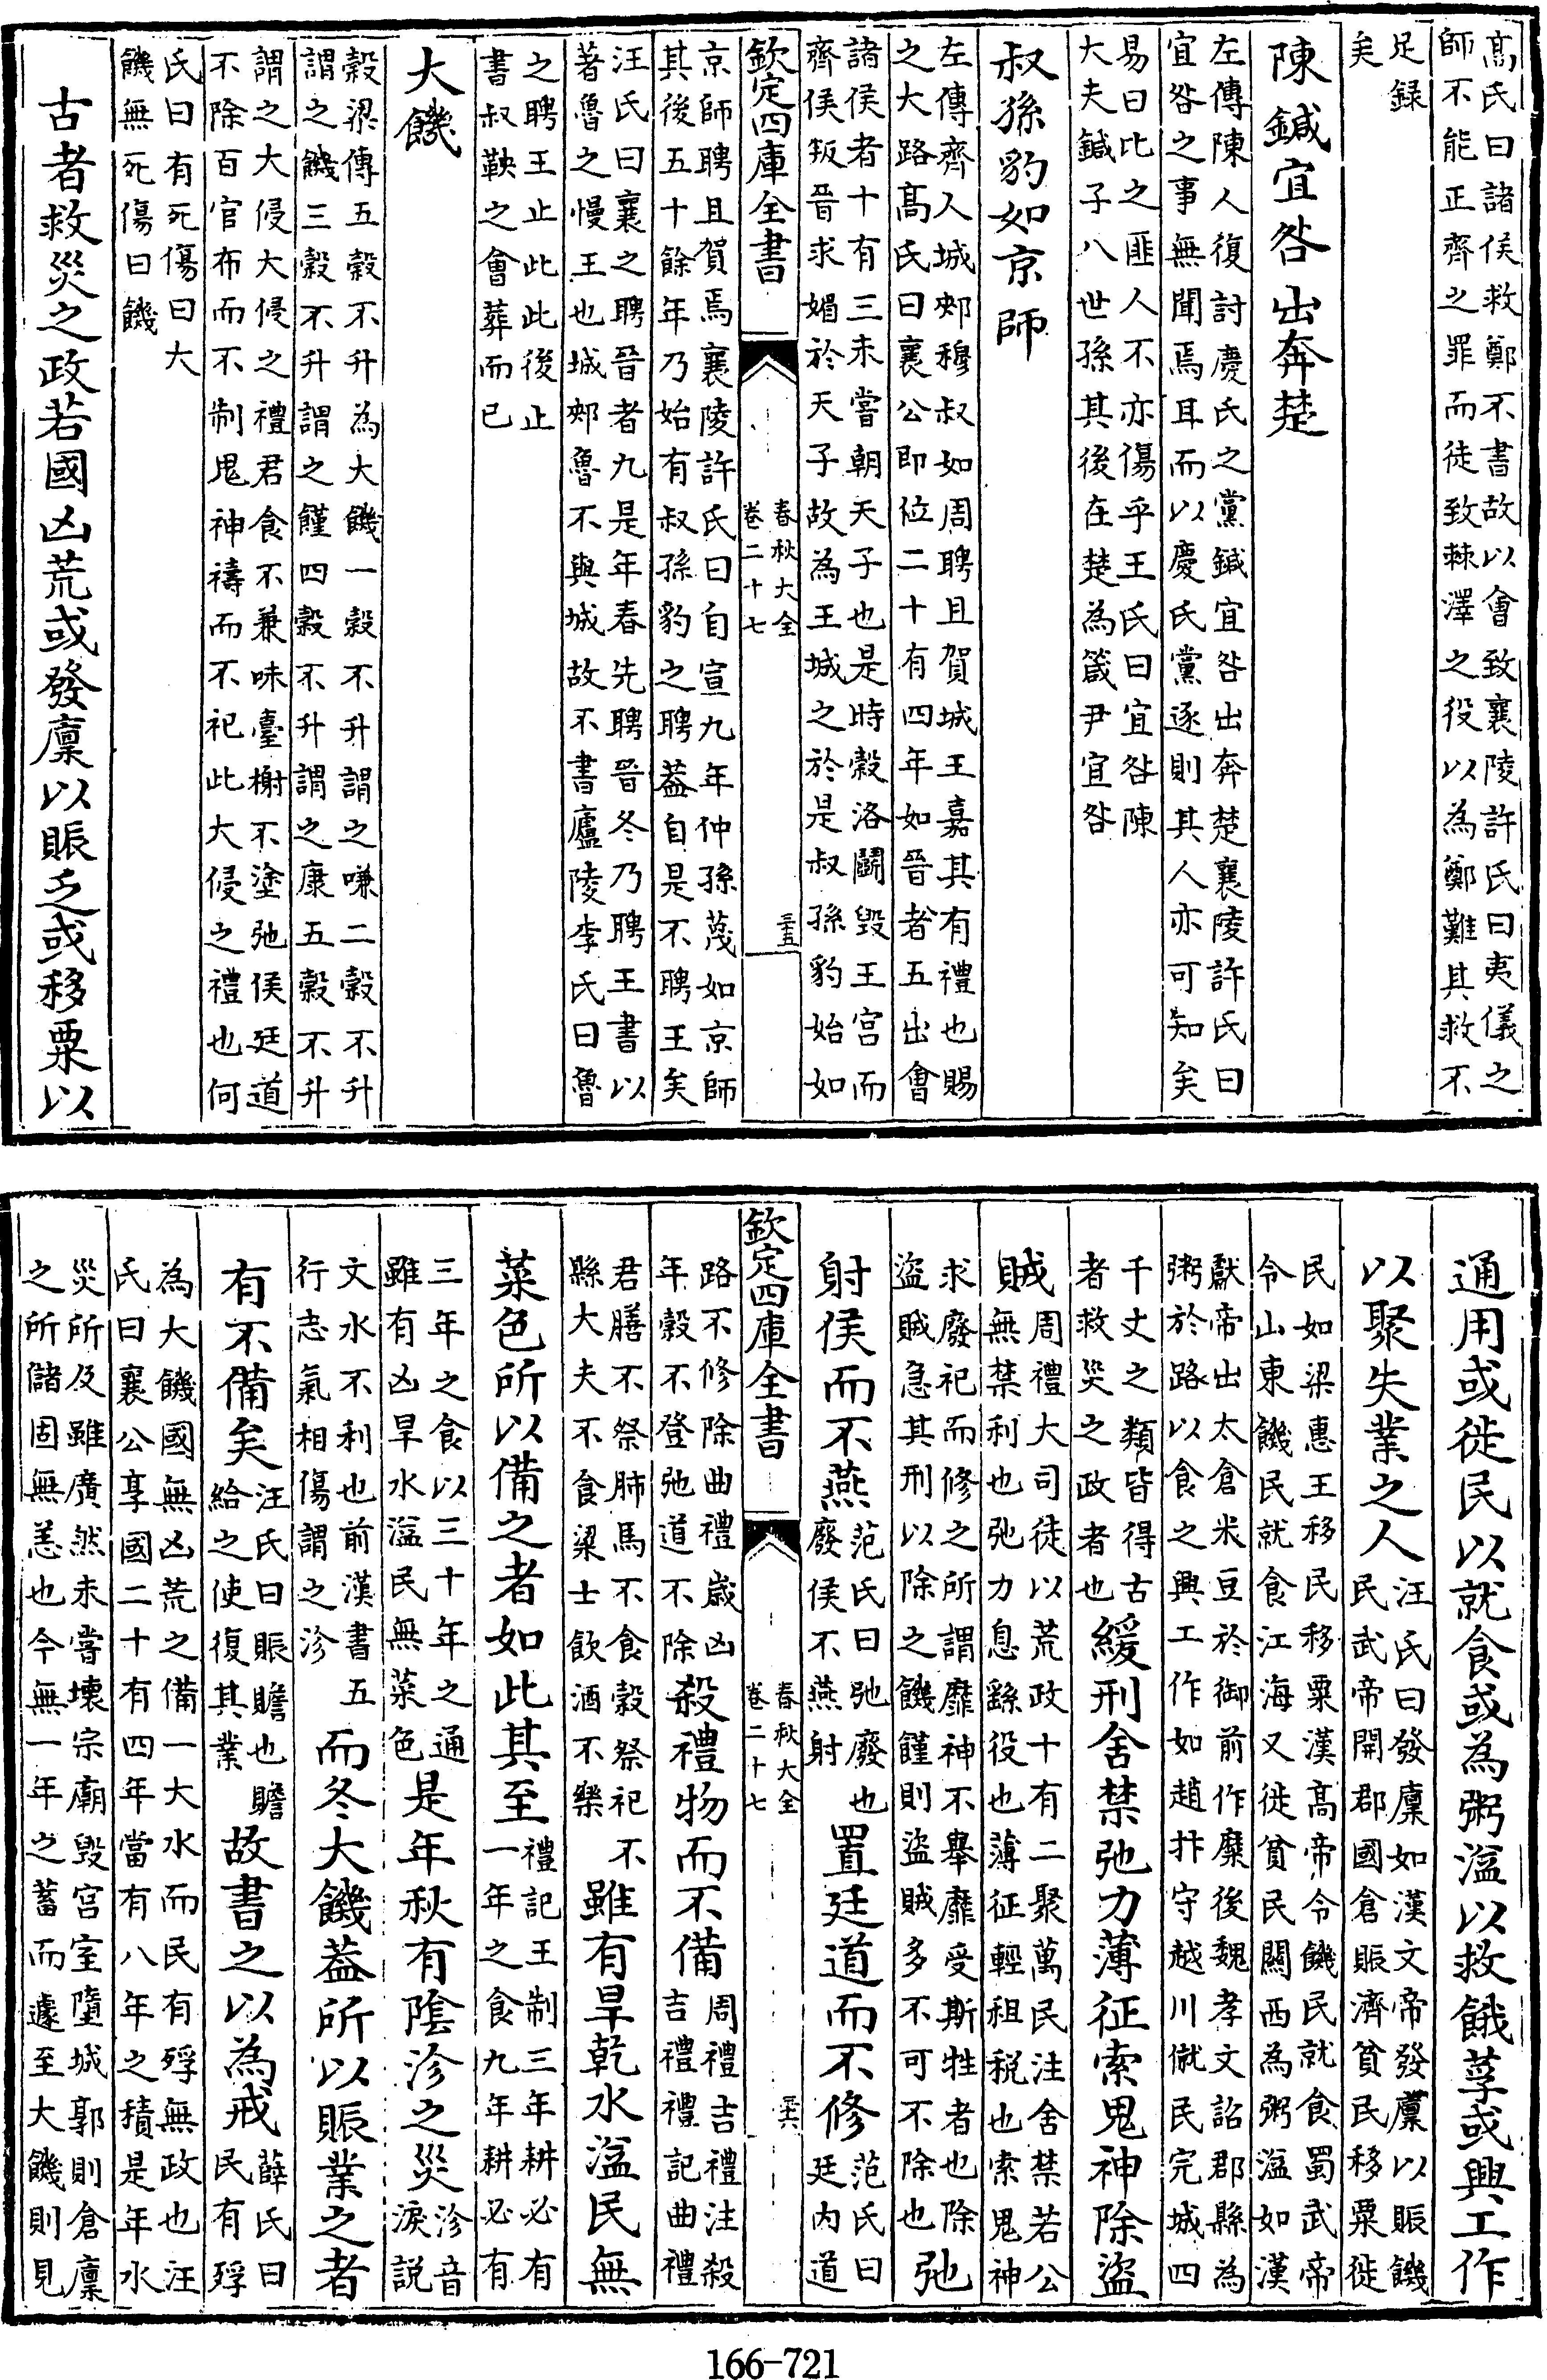 高氏曰諸侯救鄭不書故以會致襄陵許氏曰夷儀之
師不能正齊之罪而徒致棘澤之役以為鄭難其救不
足録
矣
陳鍼宜咎出奔楚
左傳陳人復討慶氏之黨鍼宜咎出奔楚襄陵許氏曰
宜咎之事無聞焉耳而以慶氏黨逐則其人亦可知矣
易曰比之匪人不亦傷乎王氏曰宜咎陳
大夫鍼子八世孫其後在楚為箴尹宜咎
叔孫豹如京師
左傳齊人城郟穆叔如周聘且賀城王嘉其有禮也賜
之大路高氏曰襄公即位二十有四年如晉者五出會
諸侯者十有三未嘗朝天子也是時穀洛鬬毀王宮而
齊侯叛晉求媚於天子故為王城之於是叔孫豹始如
欽定四庫全書 春秋大全 卷二十七 三五
京師聘且賀焉襄陵許氏曰自宣九年仲孫蔑如京師
其後五十餘年乃始有叔孫豹之聘葢自是不聘王矣
汪氏曰襄之聘晉者九是年春先聘晉冬乃聘王書以
著魯之慢王也城郟魯不與城故不書廬陵李氏曰魯
之聘王止此此後止
書叔鞅之會葬而已
大饑
穀梁傳五穀不升為大饑一穀不升謂之嗛二穀不升
謂之饑三穀不升謂之饉四穀不升謂之康五穀不升
謂之大侵大侵之禮君食不兼味臺榭不塗弛侯廷道
不除百官布而不制鬼神禱而不祀此大侵之禮也何
氏曰有死傷曰大
饑無死傷曰饑
古者救災之政若國凶荒或發廩以賑乏或移粟以
通用或徙民以就食或為粥溢以救餓莩或興工作
以聚失業之人 汪氏曰發廩如漢文帝發廩以賑饑
民武帝開郡國倉賑濟貧民移粟徙
民如梁惠王移民移粟漢高帝令饑民就食蜀武帝
令山東饑民就食江海又徙貧民關西為粥溢如漢
獻帝出太倉米豆於御前作糜後魏孝文詔郡縣為
粥於路以食之興工作如趙抃守越州僦民完城四
千丈之類皆得古
者救災之政者也 緩刑舍禁弛力薄征索鬼神除盜
賊 周禮大司徒以荒政十有二聚萬民注舍禁若公
無禁利也弛力息繇役也薄征輕租稅也索鬼神
求廢祀而修之所謂靡神不舉靡受斯牲者也除
盜賊急其刑以除之饑饉則盜賊多不可不除也 弛
射侯而不燕 范氏曰弛廢也
廢侯不燕射 置廷道而不修 范氏曰
廷內道
路不修除曲禮歲凶
年穀不登弛道不除 殺禮物而不備 周禮吉禮注殺
吉禮禮記曲禮
欽定四庫全書 春秋大全 卷二十七 三六
君膳不祭肺馬不食穀祭祀不
縣大夫不食粱士飲酒不樂 雖有旱乾水溢民無
菜色所以備之者如此其至 禮記王制三年耕必有
一年之食九年耕必有
三年之食以三十年之通
雖有凶旱水溢民無菜色 是年秋有陰沴之災 沴音
淚說
文水不利也前漢書五
行志氣相傷謂之沴 而冬大饑葢所以賑業之者
有不備矣 汪氏曰賑贍也贍
給之使復其業 故書之以為戒 薛氏曰
民有殍
為大饑國無凶荒之備一大水而民有殍無政也汪
氏曰襄公享國二十有四年當有八年之積是年水
災所及雖廣然未嘗壞宗廟毀宮室墮城郭則倉廩
之所儲固無恙也今無一年之蓄而遽至大饑則見
166-721